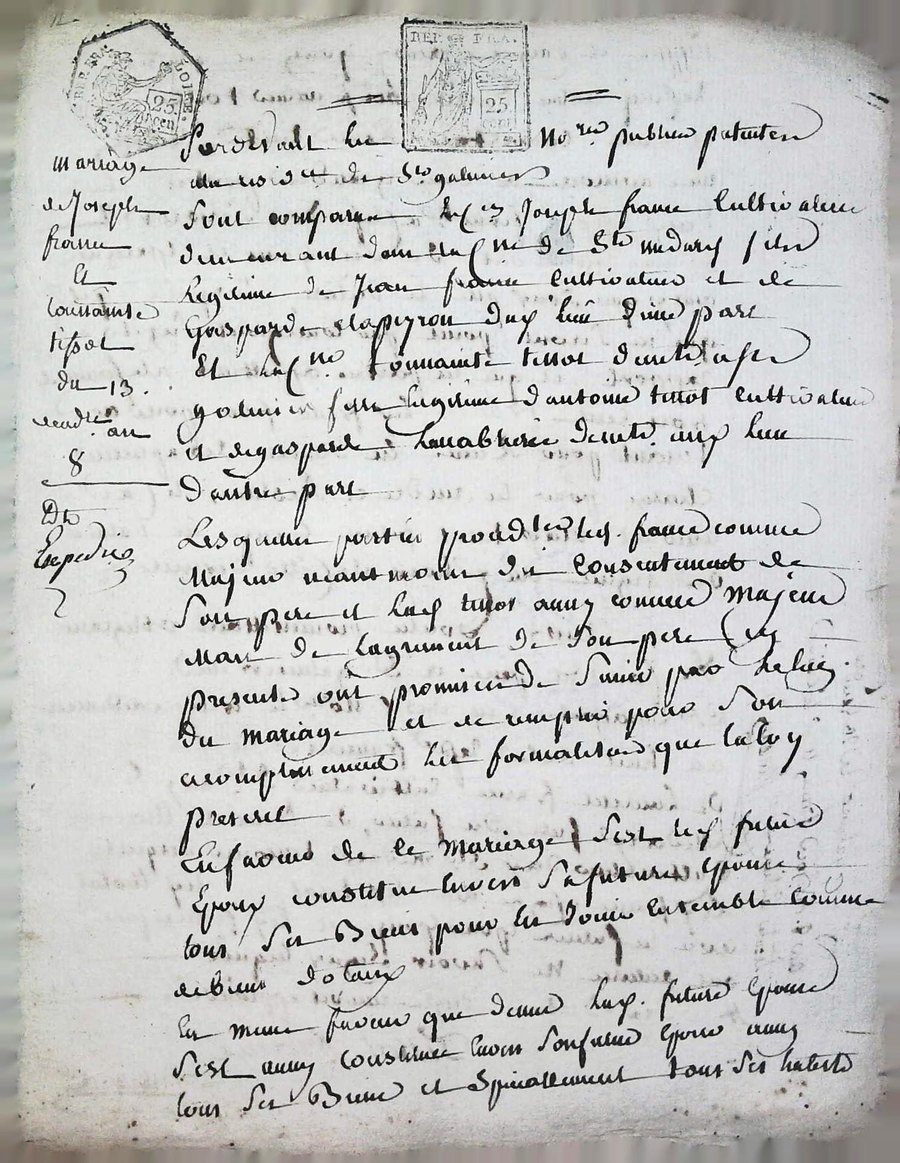 12
REP. FRA. LOIRE.
25 cen
REP. FRA.
25 cen
mariage
de Joseph
france
Et
Constance
tissot
du 13.
vend.re an
8
Dte
Expediée
Pardevant les No.res publics patentés
de St galmier
sont comparus Joseph france cultivateur
demeurant dans la C.ne de St medard fils
Legitime de Jean france cultivateur et de
Gasparde Clapeyron dud. lieu d'une part
Et la C.ne tissot dud. St
galmier fille legitime d'antoine tissot cultivateur
et de gasparde dud. lieu
d'autre part
Lesquelles parties led. france comme
Majeur neantmoins du Consentement de
Son pere et lad. tissot aussy comme Majeure
Mais de Lagrement de Son pere Cy
present ont promis de S'unir par
du mariage et de remplir pour Son
acomplissement les formalites que la loy
prescrit
En faveur de ce Mariage S'est led. futur
Epoux constitué envers Sa future Epouse
tous Ses Biens pour En Jouir Ensemble Comme
de biens dotaux
En meme faveur que dessus lad. future Epouse
S'est aussy Constituée Envers Son futur Epoux aussy
tous Ses Biens et Specialement tous Ses habits